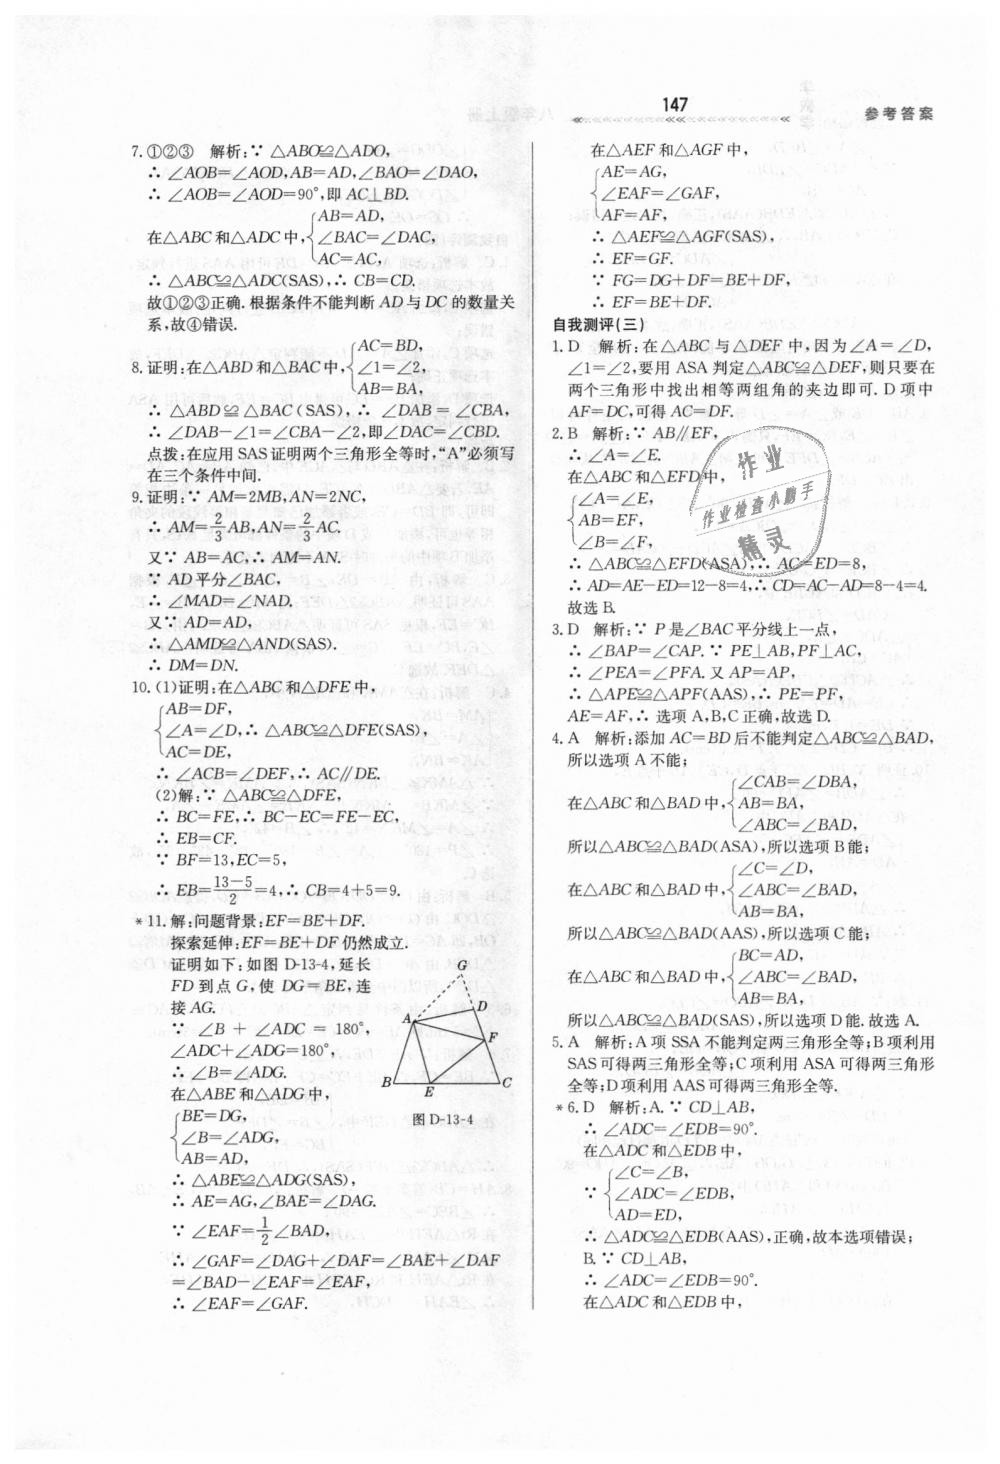 147
参考答案
7.①②③　解析:∵ △ABO≌△ADO,
∴ ∠AOB=∠AOD,AB=AD,∠BAO=∠DAO,
∴ ∠AOB=∠AOD=90°,即 AC⊥BD.
在△ABC 和△ADC 中,{AB=AD,
∠BAC=∠DAC,
AC=AC,
∴ △ABC≌△ADC(SAS),∴ CB=CD,
故①②③正确.根据条件不能判断 AD 与 DC 的数量关
系,故④错误.
8.证明:在△ABD 和△BAC 中,{AC=BD,
∠1=∠2,
AB=BA,
∴ △ABD≌△BAC (SAS),∴ ∠DAB=∠CBA,
∴ ∠DAB-∠1=∠CBA-∠2,即∠DAC=∠CBD.
点拨:在应用 SAS 证明两个三角形全等时,“A”必须写
在三个条件中间.
9.证明:∵ AM=2MB,AN=2NC,
∴ AM=2/3 AB,AN=2/3 AC.
又∵ AB=AC,∴ AM=AN.
∵ AD 平分∠BAC,
∴ ∠MAD=∠NAD.
又∵ AD=AD,
∴ △AMD≌△AND(SAS).
∴ DM=DN.
10.(1)证明:在△ABC 和△DFE 中,
{AB=DF,
∠A=∠D,∴ △ABC≌△DFE(SAS),
AC=DE,
∴ ∠ACB=∠DEF,∴ AC∥DE.
(2)解:∵ △ABC≌△DFE,
∴ BC=FE,∴ BC-EC=FE-EC,
∴ EB=CF.
∵ BF=13,EC=5,
∴ EB=(13-5)/2=4,∴ CB=4+5=9.
*11.解:问题背景:EF=BE+DF.
探索延伸:EF=BE+DF 仍然成立.
证明如下:如图 D-13-4,延长
FD 到点 G,使 DG=BE,连
接 AG.
∵ ∠B + ∠ADC = 180°,
∠ADC+∠ADG=180°,
∴ ∠B=∠ADG.
在△ABE 和△ADG 中,
{BE=DG,
∠B=∠ADG,
AB=AD,
∴ △ABE≌△ADG(SAS),
∴ AE=AG,∠BAE=∠DAG.
∵ ∠EAF=1/2∠BAD,
∴ ∠GAF=∠DAG+∠DAF=∠BAE+∠DAF
=∠BAD-∠EAF=∠EAF,
∴ ∠EAF=∠GAF.
G
D
A
F
B
E
C
图 D-13-4
在△AEF 和△AGF 中,
{AE=AG,
∠EAF=∠GAF,
AF=AF,
∴ △AEF≌△AGF(SAS),
∴ EF=GF.
∵ FG=DG+DF=BE+DF,
∴ EF=BE+DF.
自我测评(三)
1.D　解析:在△ABC 与△DEF 中,因为∠A=∠D,
∠1=∠2,要用 ASA 判定△ABC≌△DEF,则只要在
两个三角形中找出相等两组角的夹边即可.D 项中
AF=DC,可得 AC=DF.
2.B　解析:∵ AB∥EF,
∴ ∠A=∠E.
在△ABC 和△EFD 中,
{∠A=∠E,
AB=EF,
∠B=∠F,
∴ △ABC≌△EFD(ASA),∴ AC=ED=8,
∴ AD=AE-ED=12-8=4,∴ CD=AC-AD=8-4=4.
故选 B.
3.D　解析:∵ P 是∠BAC 平分线上一点,
∴ ∠BAP=∠CAP.∵ PE⊥AB,PF⊥AC,
∴ ∠PEA=∠PFA.又 AP=AP,
∴ △APE≌△APF(AAS),∴ PE=PF,
AE=AF,∴ 选项 A,B,C 正确,故选 D.
4.A　解析:添加 AC=BD 后不能判定△ABC≌△BAD,
所以选项 A 不能;
在△ABC 和△BAD 中,{∠CAB=∠DBA,
AB=BA,
∠ABC=∠BAD,
所以△ABC≌△BAD(ASA),所以选项 B 能;
在△ABC 和△BAD 中,{∠C=∠D,
∠ABC=∠BAD,
AB=BA,
所以△ABC≌△BAD(AAS),所以选项 C 能;
在△ABC 和△BAD 中,{BC=AD,
∠ABC=∠BAD,
AB=BA,
所以△ABC≌△BAD(SAS),所以选项 D 能.故选 A.
5.A　解析:A 项 SSA 不能判定两三角形全等;B 项利用
SAS 可得两三角形全等;C 项利用 ASA 可得两三角形
全等;D 项利用 AAS 可得两三角形全等.
*6.D　解析:A.∵ CD⊥AB,
∴ ∠ADC=∠EDB=90°.
在△ADC 和△EDB 中,
∵ {∠C=∠B,
∠ADC=∠EDB,
AD=ED,
∴ △ADC≌△EDB(AAS),正确,故本选项错误;
B.∵ CD⊥AB,
∴ ∠ADC=∠EDB=90°.
在△ADC 和△EDB 中,
作业
作业检查小助手
精灵